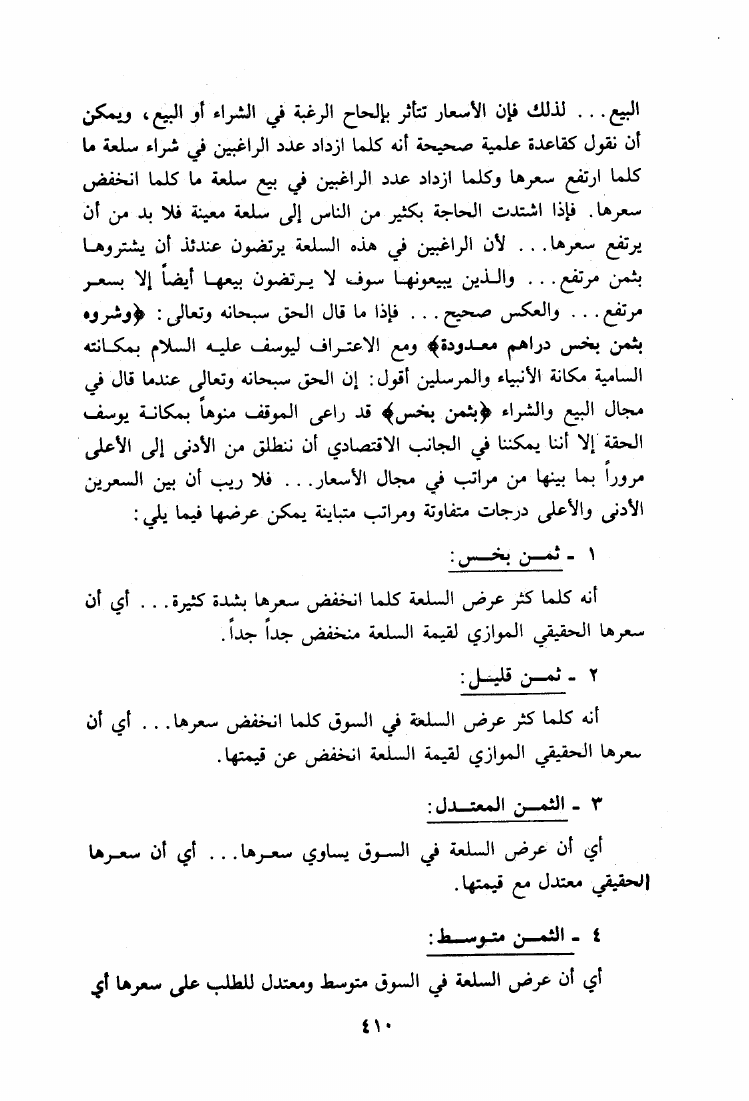 البيع... لذلك فإن الأسعار تتأثر بإلحاح الرغبة في الشراء أو البيع، ويمكن
أن نقول كقاعدة علمية صحيحة أنه كلما ازداد عدد الراغبين في شراء سلعة ما
كلما ارتفع سعرها وكلما ازداد عدد الراغبين في بيع سلعة ما كلما انخفض
سعرها. فإذا اشتدت الحاجة بكثير من الناس إلى سلعة معينة فلا بد من أن
يرتفع سعرها... لأن الراغبين في هذه السلعة يرتضون عندئذ أن يشتروها
بثمن مرتفع... والذين يبيعونها سوف لا يرتضون بيعها أيضاً إلا بسعر
مرتفع... والعكس صحيح... فإذا ما قال الحق سبحانه وتعالى: ﴿وشروه
بثمن بخس دراهم معدودة﴾ ومع الاعتراف ليوسف عليه السلام بمكانته
السامية مكانة الأنبياء والمرسلين أقول: إن الحق سبحانه وتعالى عندما قال في
مجال البيع والشراء ﴿بثمن بخس﴾ قد راعى الموقف منوهاً بمكانة يوسف
الحقة إلا أننا يمكننا في الجانب الاقتصادي أن ننطلق من الأدنى إلى الأعلى
مروراً بما بينها من مراتب في مجال الأسعار... فلا ريب أن بين السعرين
الأدنى والأعلى درجات متفاوتة ومراتب متباينة يمكن عرضها فيما يلي:
١ - ثمن بخس:
أنه كلما كثر عرض السلعة كلما انخفض سعرها بشدة كثيرة... أي أن
سعرها الحقيقي الموازي لقيمة السلعة منخفض جداً جداً.
٢ - ثمن قليل:
أنه كلما كثر عرض السلعة في السوق كلما انخفض سعرها... أي أن
سعرها الحقيقي الموازي لقيمة السلعة انخفض عن قيمتها.
٣ - الثمن المعتدل:
أي أن عرض السلعة في السوق يساوي سعرها... أي أن سعرها
الحقيقي معتدل مع قيمتها.
٤ - الثمن متوسط:
أي أن عرض السلعة في السوق متوسط ومعتدل للطلب على سعرها أي
٤١٠